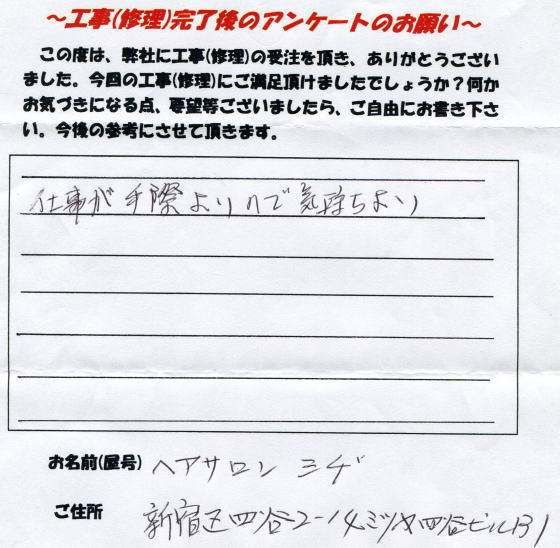 ～工事(修理)完了後のアンケートのお願い～
この度は、弊社に工事(修理)の受注を頂き、ありがとうござい
ました。今回の工事(修理)にご満足頂けましたでしょうか？何か
お気づきになる点、要望等ございましたら、ご自由にお書き下さ
い。今後の参考にさせて頂きます。
仕事が手際よいので気持ちよい
お名前(屋号) ヘアサロン ミヂ
ご住所 新宿区四谷2-14ミツヤ四谷ビルB1